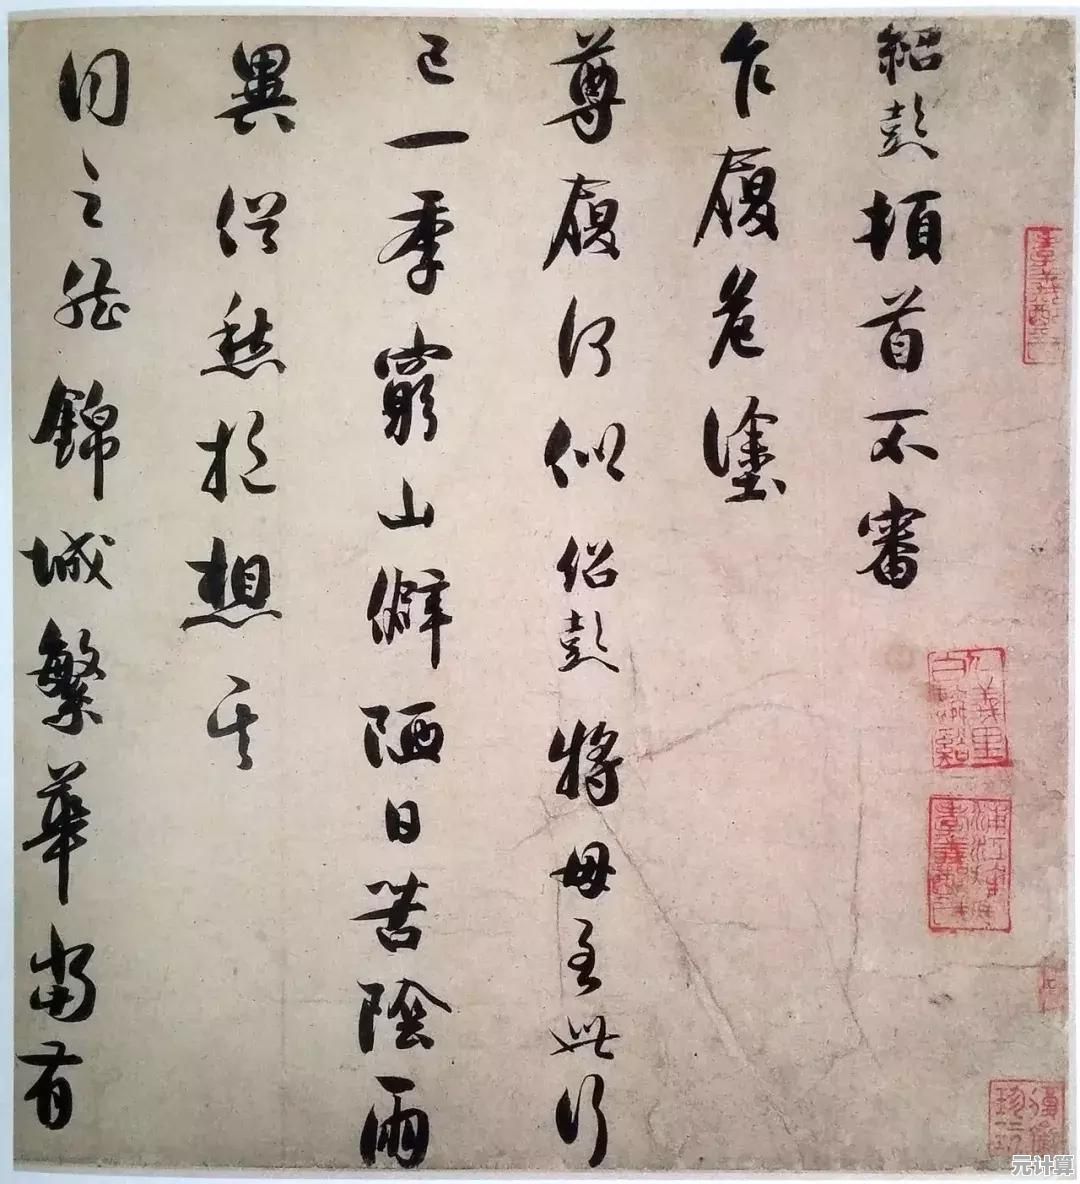 紹彭頓首不審
乍履危塗
尊履何似紹彭將母至此行
已一季窮山僻陋日苦陰雨
異俗愁抱想其
同之然錦城繁華當有
元计算